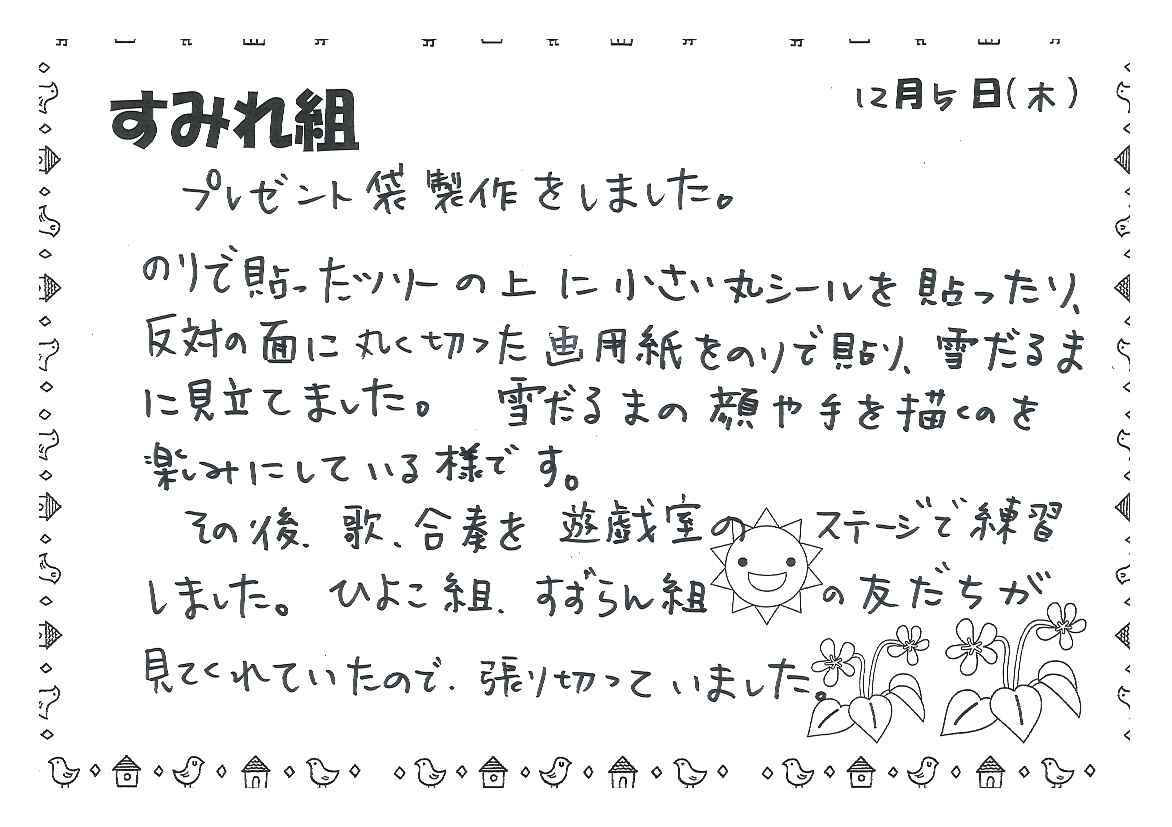 すみれ組
12月5日(木)
プレゼント袋製作をしました。
のりで貼ったツリーの上に小さい丸シールを貼ったり、
反対の面に丸く切った画用紙をのりで貼り、雪だるま
に見立てました。 雪だるまの顔や手を描くのを
楽しみにしている様です。
その後、歌、合奏を遊戯室のステージで練習
しました。ひよこ組、すずらん組の友だちが
見てくれていたので、張り切っていました。